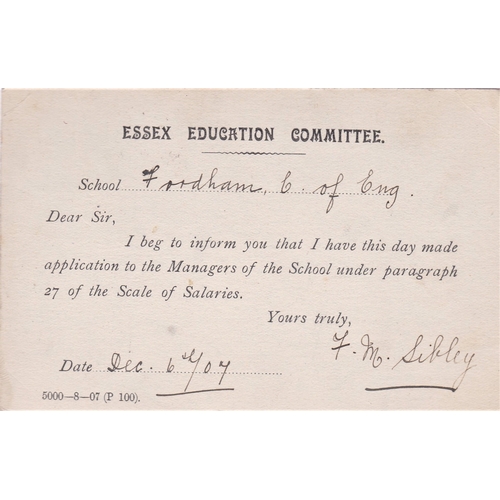 ESSEX EDUCATION COMMITTEE.
School Fordham, C. of Eng.
Dear Sir,
I beg to inform you that I have this day made
application to the Managers of the School under paragraph
27 of the Scale of Salaries.
Yours truly,
F. M. Sibley
Date Dec. 6th/07
5000—8—07 (P 100).